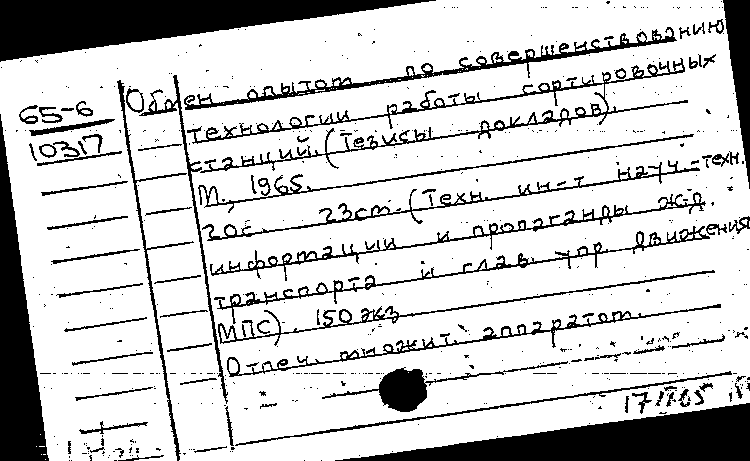 65-6
10317
Обмен опытом по совершенствованию
технологии работы сортировочных
станций. (Тезисы докладов).
М., 1965.
20с. 23см. (Техн. ин-т науч.-техн.
информации и пропаганды ж.д.
транспорта и глав. упр. движения
МПС). 150 экз.
Отпеч. множит. аппаратом.